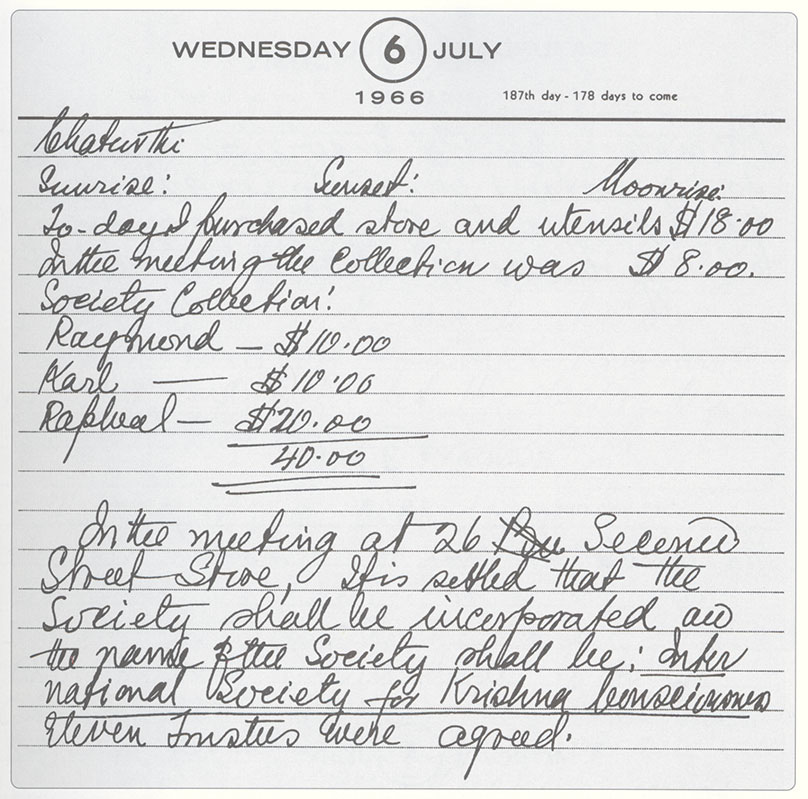 WEDNESDAY 6 JULY
1966 187th day - 178 days to come
Chaturthi
Sunrise: Sunset: Moonrise:
To-day I purchased store and utensils $18.00
In the meeting the collection was $8.00.
Society Collection:
Raymond — $10.00
Karl — $10.00
Raphael — $20.00
40.00
In the meeting at 26 Second
Street Store, It is settled that the
Society shall be incorporated and
the name of the Society shall be: Inter
national Society for Krishna Consciousness
Eleven Trustees were agreed.